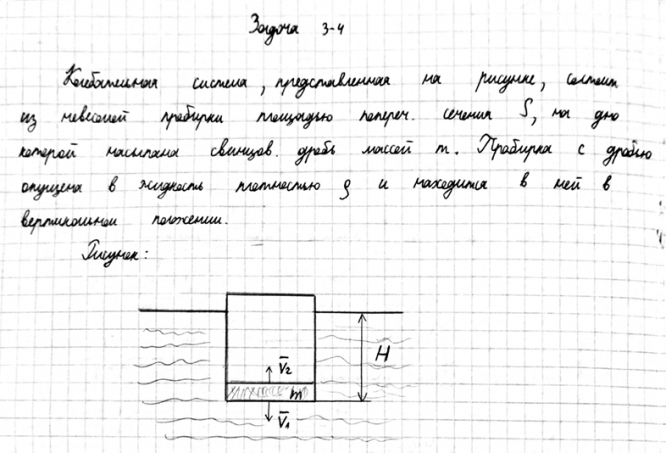 Задача 3-4
Колебательная система, представленная на рисунке, состоит
из невесомой пробирки площадью попереч. сечения S, на дно
которой насыпана свинцов. дробь массой m. Пробирка с дробью
опущена в жидкость плотностью ρ и находится в ней в
вертикальном положении.
Рисунок:
H
V̅₂
m
V̅₁